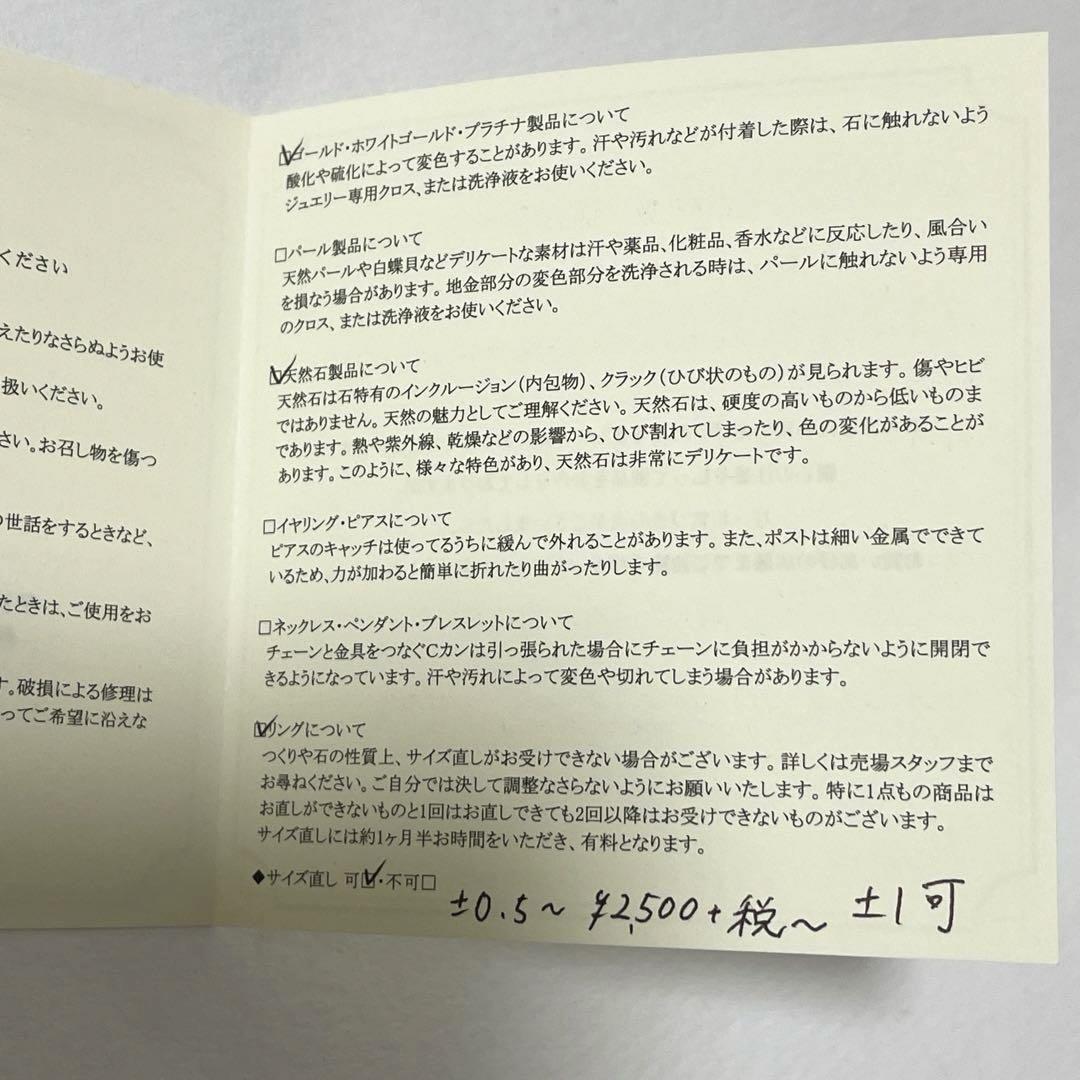 ください
えたりなさらぬようお使
扱いください。
さい。お召し物を傷つ
世話をするときなど、
たときは、ご使用をお
す。破損による修理は
ってご希望に沿えな
☑ゴールド・ホワイトゴールド・プラチナ製品について
酸化や硫化によって変色することがあります。汗や汚れなどが付着した際は、石に触れないよう
ジュエリー専用クロス、または洗浄液をお使いください。
□パール製品について
天然パールや白蝶貝などデリケートな素材は汗や薬品、化粧品、香水などに反応したり、風合い
を損なう場合があります。地金部分の変色部分を洗浄される時は、パールに触れないよう専用
のクロス、または洗浄液をお使いください。
☑天然石製品について
天然石は石特有のインクルージョン(内包物)、クラック(ひび状のもの)が見られます。傷やヒビ
ではありません。天然の魅力としてご理解ください。天然石は、硬度の高いものから低いものま
であります。熱や紫外線、乾燥などの影響から、ひび割れてしまったり、色の変化があることが
あります。このように、様々な特色があり、天然石は非常にデリケートです。
□イヤリング・ピアスについて
ピアスのキャッチは使ってるうちに緩んで外れることがあります。また、ポストは細い金属でできて
いるため、力が加わると簡単に折れたり曲がったりします。
□ネックレス・ペンダント・ブレスレットについて
チェーンと金具をつなぐCカンは引っ張られた場合にチェーンに負担がかからないように開閉で
きるようになっています。汗や汚れによって変色や切れてしまう場合があります。
☑リングについて
つくりや石の性質上、サイズ直しがお受けできない場合がございます。詳しくは売場スタッフまで
お尋ねください。ご自分では決して調整なさらないようにお願いいたします。特に1点もの商品は
お直しができないものと1回はお直しできても2回以降はお受けできないものがございます。
サイズ直しには約1ヶ月半お時間をいただき、有料となります。
◆サイズ直し 可☑・不可□
±0.5～ ¥2,500+税～ ±1可